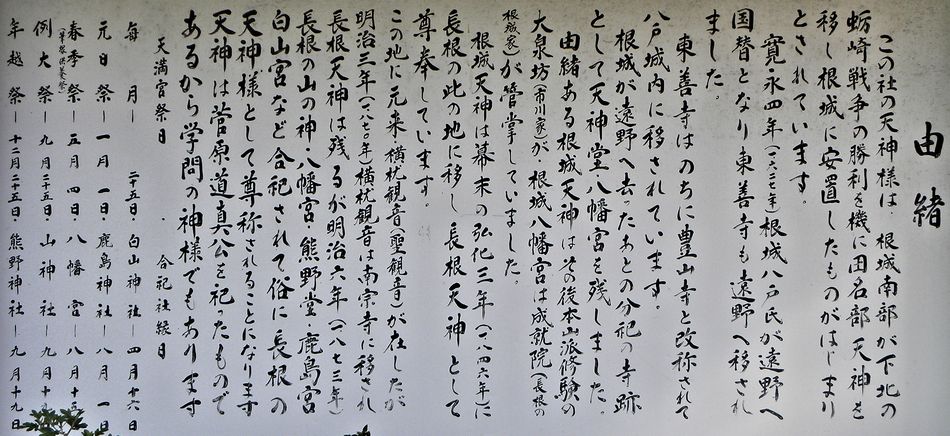 由緒
この社の天神様は、根城南部が下北の
蛎崎戦争の勝利を機に田名部天神を
移し根城に安置したものがはじまり
とされています。
寛永四年(一六二七年)根城八戸氏が遠野へ
国替となり東善寺も遠野へ移され
ました。
東善寺はのちに豊山寺と改称されて
八戸城内に移されています。
根城が遠野へ去ったあとの分祀の寺跡
として天神堂八幡宮を残しました。
由緒ある根城天神はその後本山派修験の
大泉坊(市川家)が、根城八幡宮は成就院(長根の
根城家)が管掌していました。
根城天神は幕末の弘化三年(一八四六年)に
長根の此の地に移し長根天神として
尊奉しています。
この地に元来横枕観音(聖観音)が在したが
明治三年(一八七〇年)横枕観音は南宗寺に移され
長根天神は残るが明治六年(一八七三年)
長根の山の神・八幡宮・熊野堂・鹿島宮
白山宮など合祀されて俗に長根の
天神様として尊称されることになります
天神は菅原道真公を祀ったもので
あるから学問の神様でもあります
天満宮祭日 ・合祀社縁日
毎月―二十五日・白山神社―四月十六日
元日祭―一月一日・鹿島神社―八月一日
春季祭―五月四日・八幡宮―八月十
例大祭―九月二十五日・山神社―九月十
年越祭―十二月二十五日・熊野神社―九月十九日